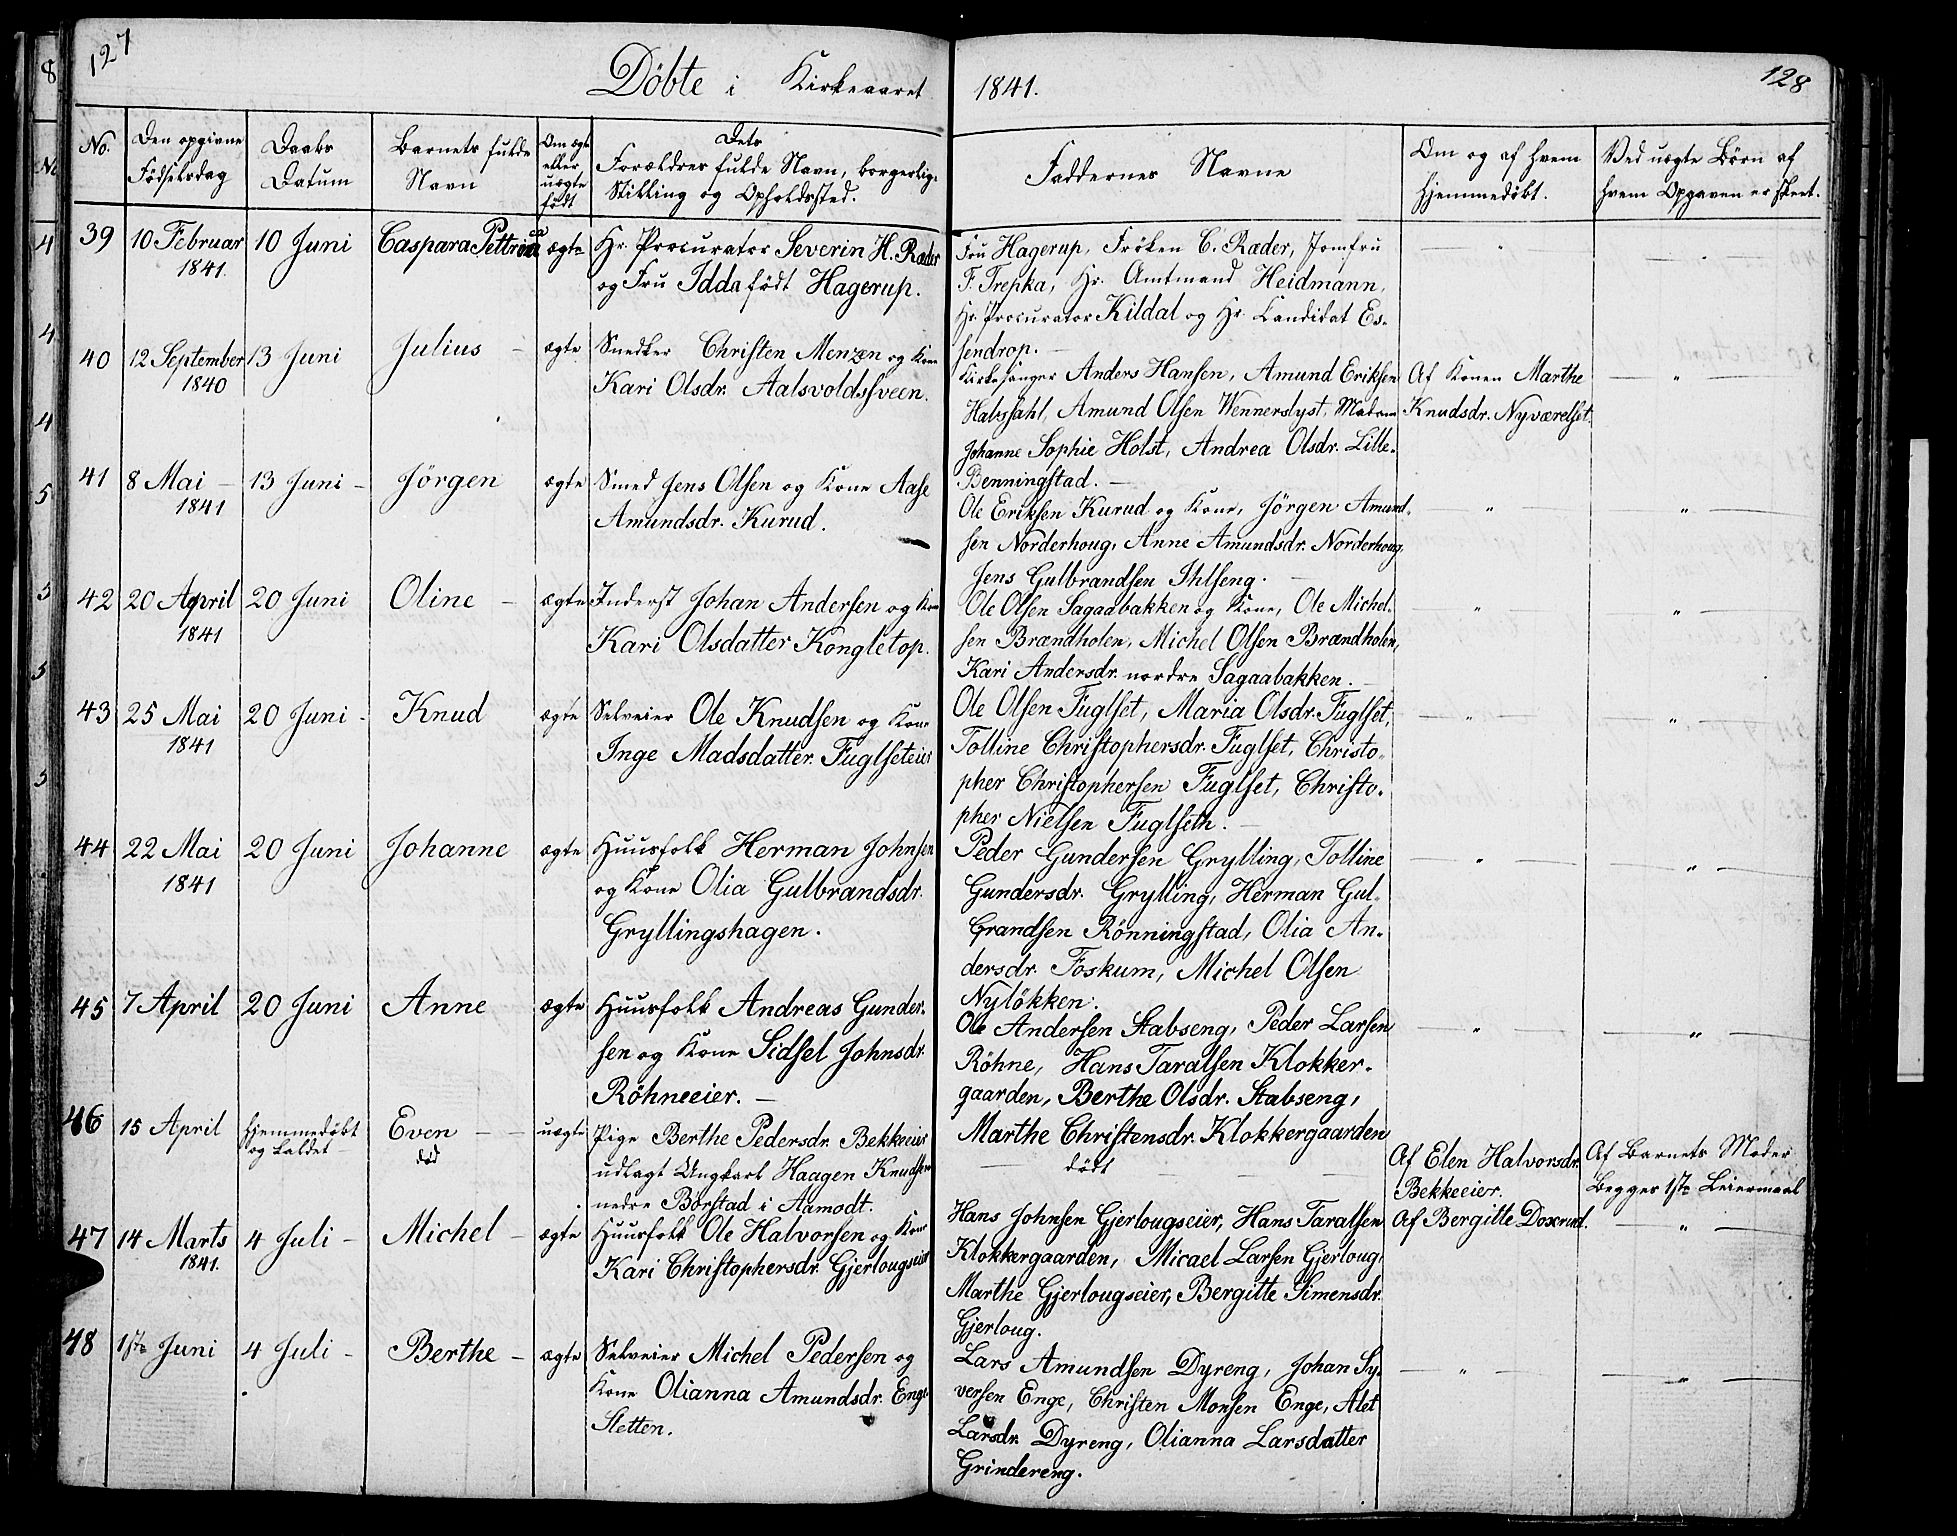 127
Döbte i Kirkeaaret 1841.
128
No.
Den opgivne Födselsdag
Daabs Datum
Barnets fulde Navn
Om ægte eller uægte födt
Dets Forældres fulde Navn, borgerlig Stilling og Opholdssted.
Faddernes Navne
Om og af hvem hjemmedöbt.
Ved uægte Börn af hvem Opgaven er skeet.
39 10 Februar 1841. 10 Juni Caspara Pettrina ægte
Hr. Procurator Severin H. Ræder
og Fru Idda födt Hagerup.
Fru Hagerup, Fröken C. Ræder, Jomfru
F. Trepka, Hr. Amtmand Heidmann,
Hr. Procurator Kildal og Hr. Candidat Es-
sendrop. —
40 12 September 1840 13 Juni Julius – ægte
Snedker Christen Menzen og Kone
Kari Olsdr. Aalsvoldssveen.
Kirkesanger Anders Hansen, Amund Eriksen
Halvsdahl, Amund Olsen Wennerslyst, Madam
Johanne Sophie Holst, Andrea Olsdr. Lille-
Benningstad. —
Af Konen Marthe
Knudsdr. Nyværelset.
41 8 Mai – 1841 13 Juni – Jörgen ægte
Smed Jens Olsen og Kone Aase
Amundsdr. Kurud.
Ole Eriksen Kurud og Kone, Jörgen Amund-
sen Norderhoug, Anne Amundsdr. Norderhoug,
Jens Gulbrandsen Ihlseng. —
42 20 April 1841 20 Juni Oline – ægte
Inderst Johan Andersen og Kone
Kari Olsdatter Kongletop.
Ole Olsen Sagaabakken og Kone, Ole Michel-
sen Brændholen, Michel Olsen Brændholen,
Kari Andersdr. nordre Sagaabakken. —
43 25 Mai 1841 20 Juni – Knud ægte
Selveier Ole Knudsen og Kone
Inge Madsdatter Fuglseteier
Ole Olsen Fuglset, Maria Olsdr. Fuglset,
Tolline Christophersdr. Fuglset, Christo-
pher Christophersen Fuglset, Christo-
pher Nielsen Fuglseth. —
44 22 Mai 1841 20 Juni Johanne ægte
Huusfolk Herman Johnsen
og Kone Olia Gulbrandsdr.
Gryllingshagen.
Peder Gundersen Grylling, Tolline
Gundersdr. Grylling, Herman Gul-
brandsen Rönningstad, Olia An-
dersdr. Foskum, Michel Olsen
Nylökken.
45 7 April 20 Juni Anne ægte
Huusfolk Andreas Gunder-
sen og Kone Sidsel Johnsdr.
Röhneeier. —
Ole Andersen Stabseng, Peder Larsen
Röhne, Hans Taralsen Klokker-
gaarden, Berthe Olsdr. Stabseng,
Marthe Christensdr. Klokkergaarden
46 15 April Hjemmedöbt og kaldet – Even – död uægte
Pige Berthe Pedersdr. Bekkeeier
udlagt Ungkarl Haagen Knudsen
nedre Börstad i Aamodt.
dödt
Af Elen Halvorsdr.
Bekkeeier.
Af Barnets Moder
Begges 1ste Leiermaal
47 14 Marts 1841. 4 Juli – Michel – ægte
Huusfolk Ole Halvorsen og Kone
Kari Christophersdr. Gjerlougseier
Hans Johnsen Gjerlougseier, Hans Taralsen
Klokkergaarden, Micael Larsen Gjerloug,
Marthe Gjerlougseier, Bergitte Simensdr.
Gjerloug.
Af Bergitte Doxrud.
48 1ste Juni 4 Juli – Berthe – ægte
Selveier Michel Pedersen og
Kone Olianna Amundsdr. Enge-
Sletten.
Lars Amundsen Dyreng, Johan Sy-
versen Enge, Christen Monsen Enge, Alet
Larsdr. Dyreng, Olianna Larsdatter
Grindereng.